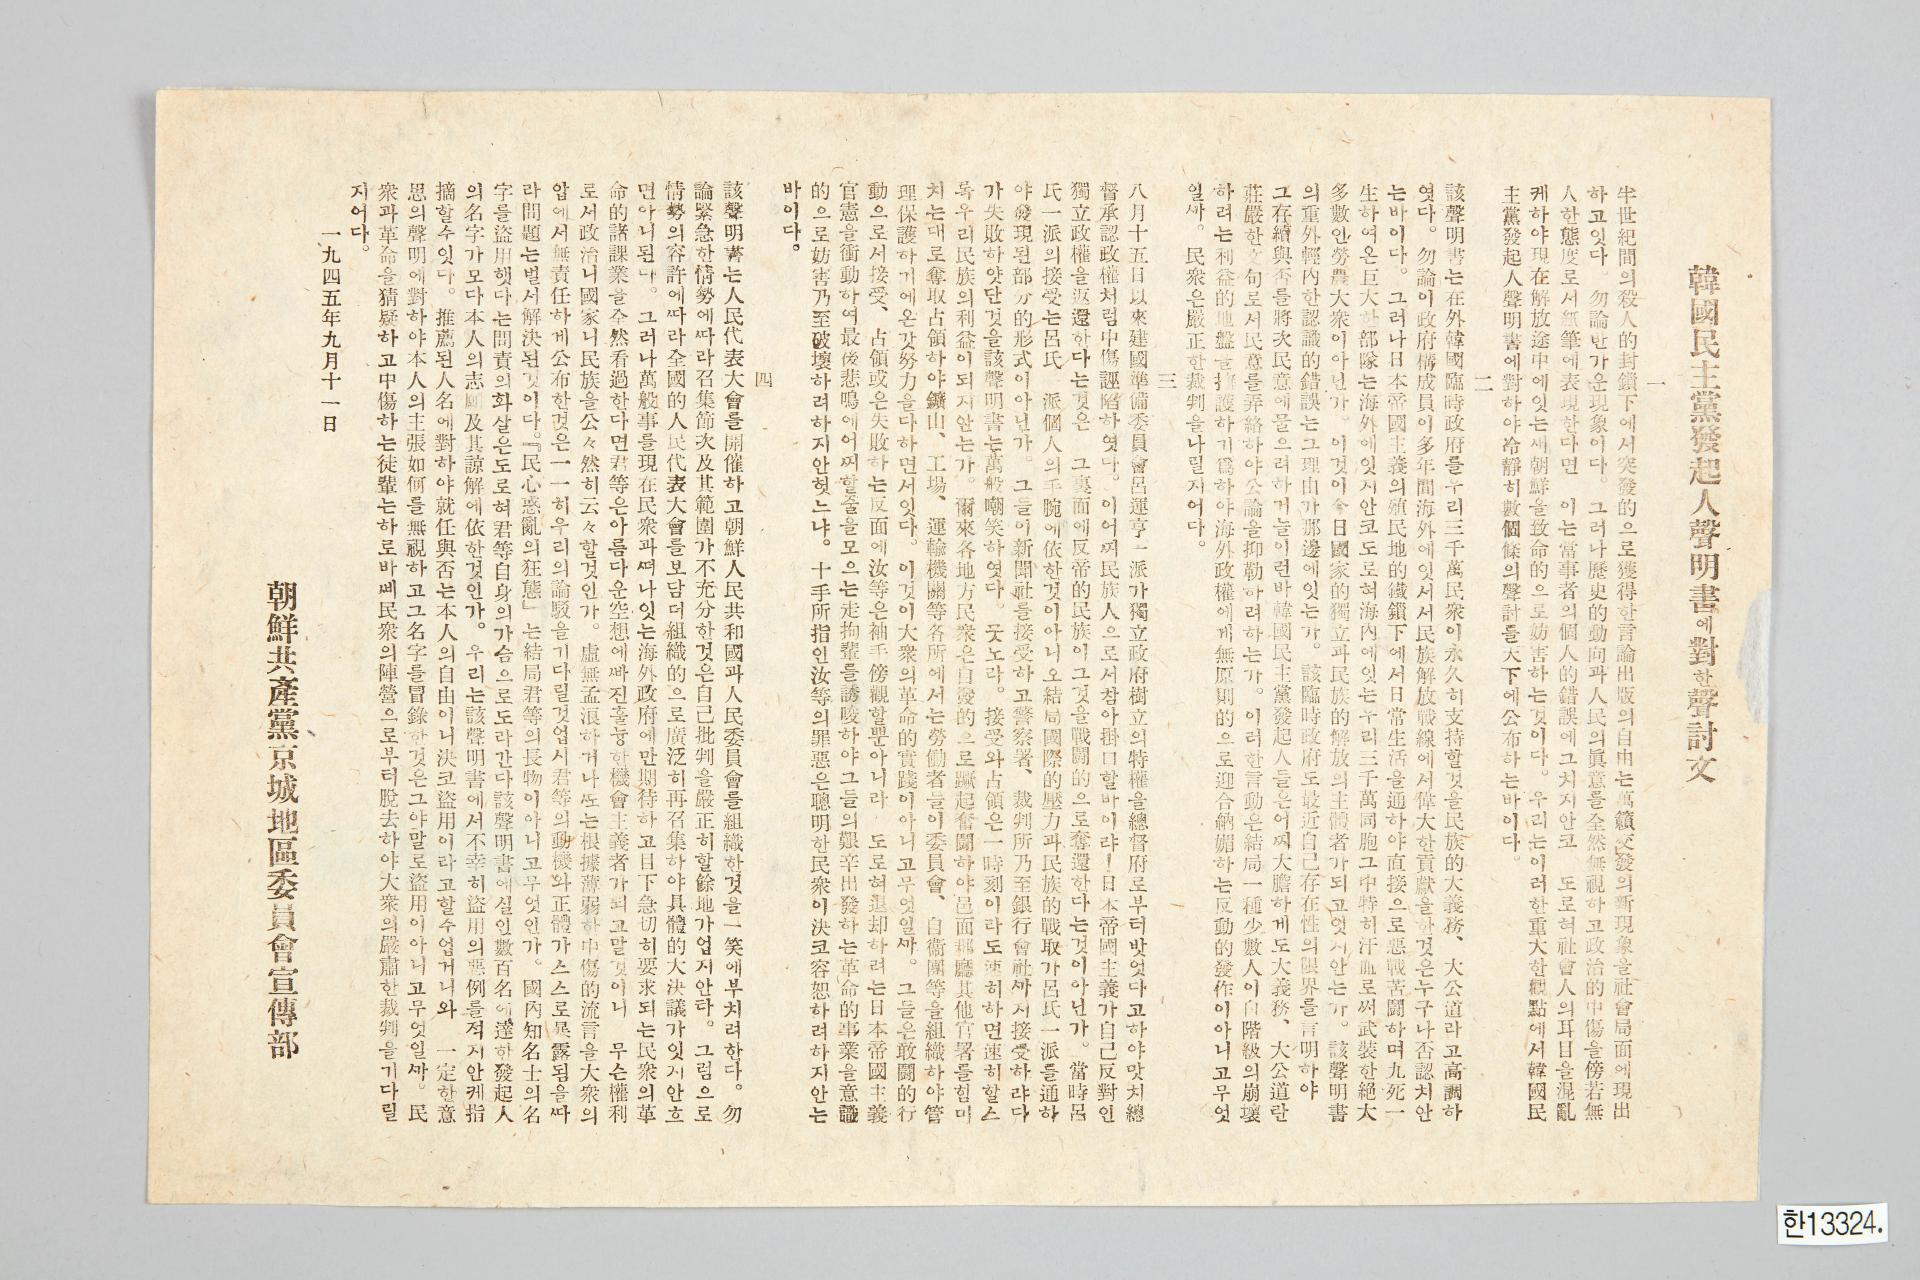 韓國民主黨發起人聲明書에對한聲討文
一
半世紀間의殺人的封鎖下에서突發的으로獲得한言論出版의自由는萬籟交發의新現象을社會局面에現出
하고잇다。勿論반가운現象이다。그러나歷史的動向과人民의眞意를全然無視하고政治的中傷을傍若無
人한態度로서紙筆에表現한다면 이는當事者의個人的錯誤에그치지안코 도로혀社會人의耳目을混亂
케하야現在解放途中에잇는새朝鮮을致命的으로妨害하는것이다。우리는이러한重大한觀點에서韓國民
主黨發起人聲明書에對하야冷靜히數個條의聲討를天下에公布하는바이다。
二
該聲明書는在外韓國臨時政府를우리三千萬民衆이永久히支持할것을民族的大義務、大公道라고高調하
엿다。勿論이政府構成員이多年間海外에잇서서民族解放戰線에서偉大한貢獻을한것은누구나否認치안
는바이다。그러나日本帝國主義의殖民地的鐵鎖下에서日常生活을通하야直接으로惡戰苦鬪하며九死一
生하여온巨大한部隊는海外에잇지안코도로혀海內에잇는우리三千萬同胞그中特히汗血로써武裝한絶大
多數인勞農大衆이아닌가。이것이今日國家的獨立과民族的解放의主體者가되고잇지안는가。該聲明書
의重外輕內한認識的錯誤는그理由가那邊에잇는가。該臨時政府도最近自己存在性의限界를言明하야
그存續與否를將次民意에물으려하거늘이런바韓國民主黨發起人들은어찌大膽하게도大義務、大公道란
莊嚴한文句로서民意를弄絡하야公論을抑勒하려하는가。이러한言動은結局一種少數人이自階級의崩壞
하려는利益的地盤을擁護하기爲하야海外政權에게無原則的으로迎合納媚하는反動的發作이아니고무엇
일까。民衆은嚴正한裁判을나릴지어다。
三
八月十五日以來建國準備委員會呂運亨一派가獨立政府樹立의特權을總督府로부터밧엇다고하야맛치總
督承認政權처럼中傷誣陷하엿다。이어찌民族人으로서참아掛口할바이랴！日本帝國主義가自己反對인
獨立政權을返還한다는것은 그裏面에反帝的民族이그것을戰鬪的으로奪還한다는것이아닌가。當時呂
氏一派의接受는呂氏一派個人의手腕에依한것이아니오結局國際的壓力과民族的戰取가呂氏一派를通하
야發現된部分的形式이아닌가。그들이新聞社를接受하고警察署、裁判所乃至銀行會社까지接受하랴다
가失敗하얏단것을該聲明書는萬般嘲笑하엿다。웃노라。接受와占領은一時刻이라도速히하면速히할스
록우리民族의利益이되지안는가。爾來各地方民衆은自發的으로蹶起奮鬪하야邑面郡廳其他官署를힘미
치는대로奪取占領하야鑛山、工場、運輸機關等各所에서는勞働者들이委員會、自衛團等을組織하야管
理保護하기에온갓努力을다하면서잇다。이것이大衆의革命的實踐이아니고무엇일까。그들은敢鬪的行
動으로서接受、占領或은失敗하는反面에汝等은袖手傍觀할뿐아니라 도로혀退却하려는日本帝國主義
官憲을衝動하여最後悲鳴에어찌할줄을모으는走狗輩를誘唆하야그들의艱辛出發하는革命的事業을意識
的으로妨害乃至破壞하려하지안헛느냐。十手所指인汝等의罪惡은聰明한民衆이決코容恕하려하지안는
바이다。
四
該聲明書는人民代表大會를開催하고朝鮮人民共和國과人民委員會를組織한것을一笑에부치려한다。勿
論緊急한情勢에따라召集節次及其範圍가不充分한것은自己批判을嚴正히할餘地가업지안타。그럼으로
情勢의容許에따라全國的人民代表大會를보담더組織的으로廣泛히再召集하야具體的大決議가잇지안흐
면아니된다。그러나萬般事를現在民衆과떠나잇는海外政府에만期待하고目下急切히要求되는民衆의革
命的諸課業을全然看過한다면君等은아름다운空想에빠진흘능한機會主義者가되고말것이니 무슨權利
로서政治니國家니民族을公々然히云々할것인가。虛無孟浪하거나또는根據薄弱한中傷的流言을大衆의
압에서無責任하게公布한것은一一히우리의論駁을기다릴것업시君等의動機와正體가스스로暴露됨을따
라問題는벌서解決된것이다。『民心惑亂의狂態』는結局君等의長物이아니고무엇인가。國內知名士의名
字를盜用햇다는問責의화살은도로혀君等自身의가슴으로도라간다該聲明書에실인數百名에達한發起人
의名字가모다本人의志願及其諒解에依한것인가。우리는該聲明書에서不幸히盜用의惡例를적지안케指
摘할수잇다。推薦된人名에對하야就任與否는本人의自由이니決코盜用이라고할수업거니와 一定한意
思의聲明에對하야本人의主張如何를無視하고그名字를冒錄한것은그야말로盜用이아니고무엇일까。民
衆과革命을猜疑하고中傷하는徒輩는하로바삐民衆의陣營으로부터脫去하야大衆의嚴肅한裁判을기다릴
지어다。
一九四五年九月十一日
朝鮮共產黨京城地區委員會宣傳部
한13324.